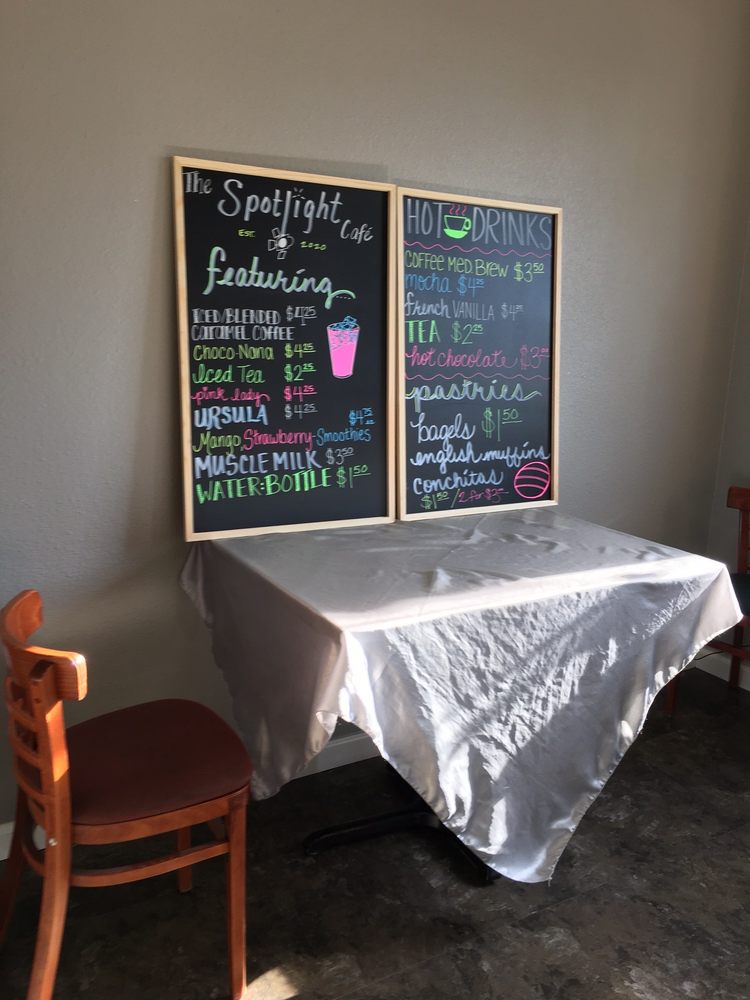 The Spotlight Café
EST. 2020
featuring
ICED/BLENDED $4.25
CARAMEL COFFEE
Choco-Nana $4.25
Iced Tea $2.25
pink lady $4.25
URSULA $4.25
$4.75
Mango, Strawberry-Smoothies
MUSCLE MILK $3.50
WATER:BOTTLE $1.50
HOT DRINKS
COFFEE MED. Brew $3.50
mocha $4.25
french VANILLA $4.25
TEA $2.25
hot chocolate $3.00
pastries
bagels $1.50
english muffins
conchitas
$1.50 / 2 for $3.00